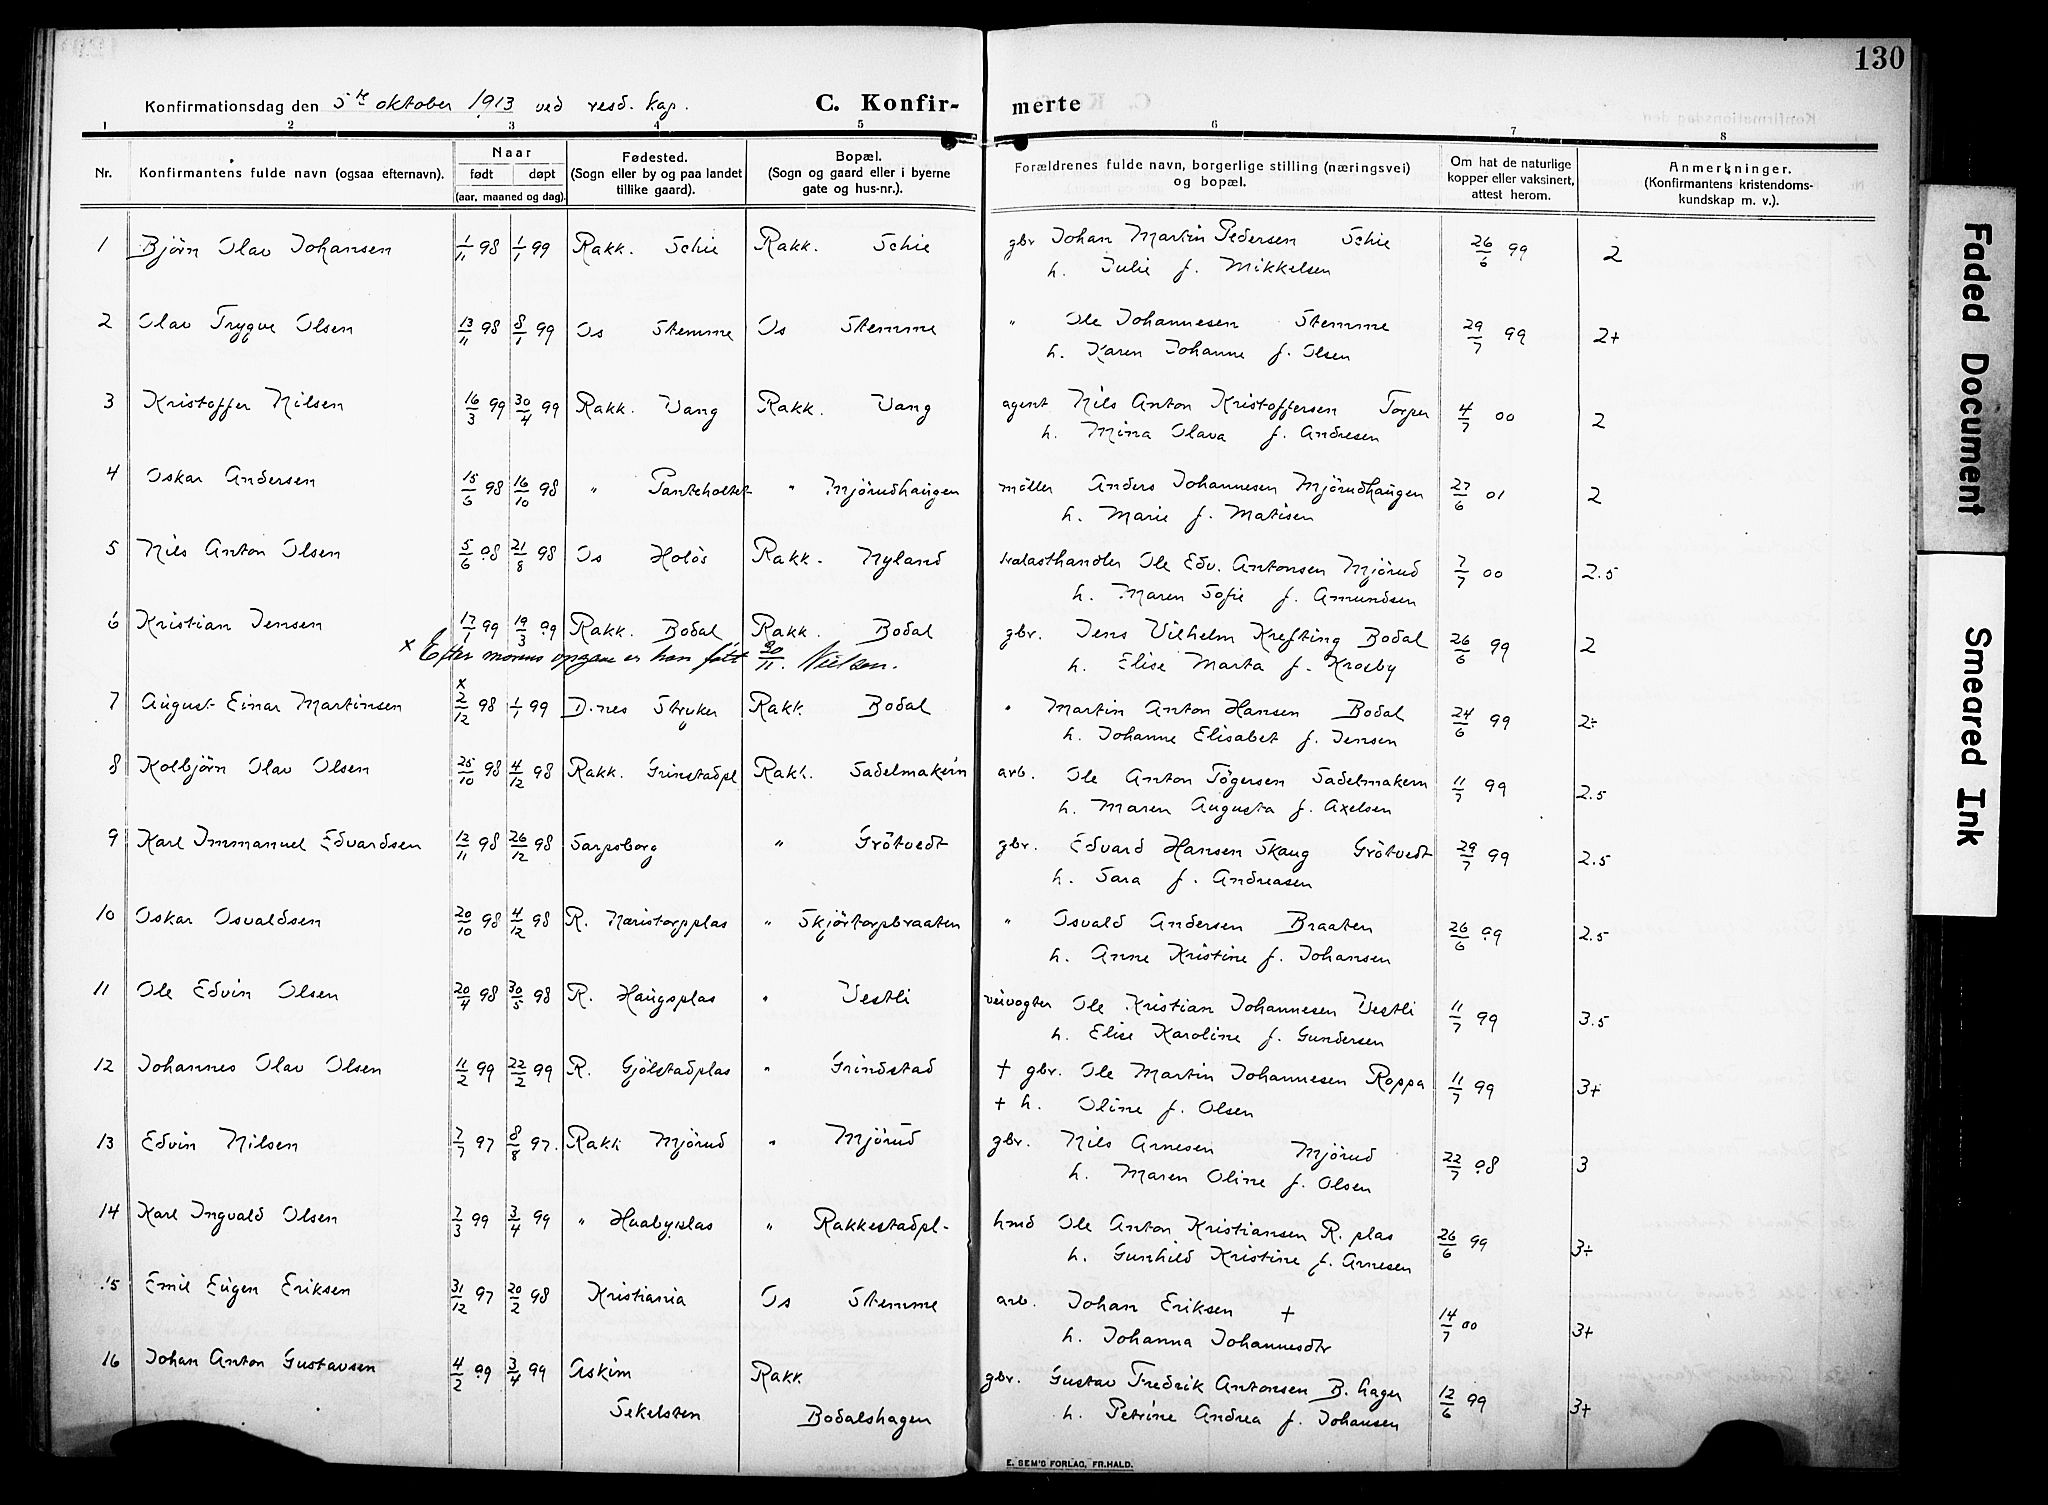 130
Konfirmationsdag den 5te oktober 1913 ved resd. kap. C. Konfir- merte
1 2 3 4 5 6 7 8
Nr. Konfirmantens fulde navn (ogsaa efternavn). Naar født døpt (aar, maaned og dag). Fødested. (Sogn eller by og paa landet tillike gaard). Bopæl. (Sogn og gaard eller i byerne gate og hus-nr.). Forældrenes fulde navn, borgerlige stilling (næringsvei) og bopæl. Om hat de naturlige kopper eller vaksinert, attest herom. Anmerkninger. (Konfirmantens kristendoms- kundskap m. v.).
1 Björn Olav Johansen 1/11 98 1/1 99 Rakk. Schie Rakk. Schie gbr Johan Martin Pedersen Schie 26/6 99 2
h. Julie f. Mikkelsen
2 Olav Trygve Olsen 13/11 98 8/1 99 Os Stemme Os Stemme " Ole Johannesen Stemme 29/7 99 2+
h. Karen Johanne f. Olsen
3 Kristoffer Nilsen 16/3 99 30/4 99 Rakk. Vang Rakk. Vang agent Nils Anton Kristoffersen Torper 4/7 00 2
h. Mina Olava f. Andresen
4 Oskar Andersen 15/6 98 16/10 98 " Tanteholtet " Mjörudhaugen möller Anders Johannesen Mjörudhaugen 27/6 01 2
h. Marie f. Matisen
5 Nils Anton Olsen 5/6 98 21/8 98 Os Holös Rakk. Nyland Ole Edv. Antonsen Mjörud 7/7 00 2.5
h. Maren Sofie f. Amundsen
6 Kristian Jensen 17/1 99 19/3 99 Rakk. Bodal Rakk. Bodal gbr. Jens Vilhelm Krefting Bodal 26/6 99 2
h. Elise Marta f. Krosby
x Efter morens opgave er han født 30/11. Nielsen.
7 August Einar Martinsen x 2/12 98 1/1 99 D.nes Stryker Rakk. Bodal " Martin Anton Hansen Bodal 24/6 99 2÷
h. Johanne Elisabet f. Jensen
8 Kolbjörn Olav Olsen 25/10 98 4/12 98 Rakk. Grinstadpl Rakk. Sadelmakern arb. Ole Anton Tögersen Sadelmakern 11/7 99 2.5
h. Maren Augusta f. Axelsen
9 Karl Immanuel Edvardsen 12/11 98 26/12 98 Sarpsborg " Grötvedt gbr. Edvard Hansen Skaug Grötvedt 29/7 99 2.5
h. Sara f. Andreasen
10 Oskar Osvaldsen 20/10 98 4/12 98 R. Næristorpplas " Skjörtorpbraaten " Osvald Andersen Braaten 26/6 99 2.5
h. Anne Kristine f. Johansen
11 Ole Edvin Olsen 20/4 98 30/5 98 R. Haugsplas " Vestli veivogter Ole Kristian Johannesen Vestli 11/7 99 3.5
h. Elise Karoline f. Gundersen
12 Johannes Olav Olsen 11/2 99 22/2 99 R. Gjölstadplas " Grindstad + gbr. Ole Martin Johannesen Roppa 11/7 99 3+
+ h. Oline f. Olsen
13 Edvin Nilsen 7/7 97 8/8 97. Rakk Mjörud " Mjörud gbr. Nils Arnesen Mjörud 22/7 98 3
h. Maren Oline f. Olsen
14 Karl Ingvald Olsen 7/3 99 3/4 99 " Huabyplas " Rakkestadpl- hmd Ole Anton Kristiansen R. plas 26/6 99 3÷
h. Gunhild Kristine f. Arnesen
15 Emil Eugen Eriksen 31/12 97 20/2 98 Kristiania Os Stemme arb. Johan Eriksen + 14/7 00 3+
h. Johanna Johannesdtr
16 Johan Anton Gustavsen 4/2 99 3/4 99 Askim Rakk. gbr. Gustav Fredrik Antonsen B. hagen 12/6 99 3+
Sekelsten Bodalshagen h. Petrine Andrea f. Johansen
E. SEM'S FORLAG, FR.HALD.
Faded Document
Smeared Ink